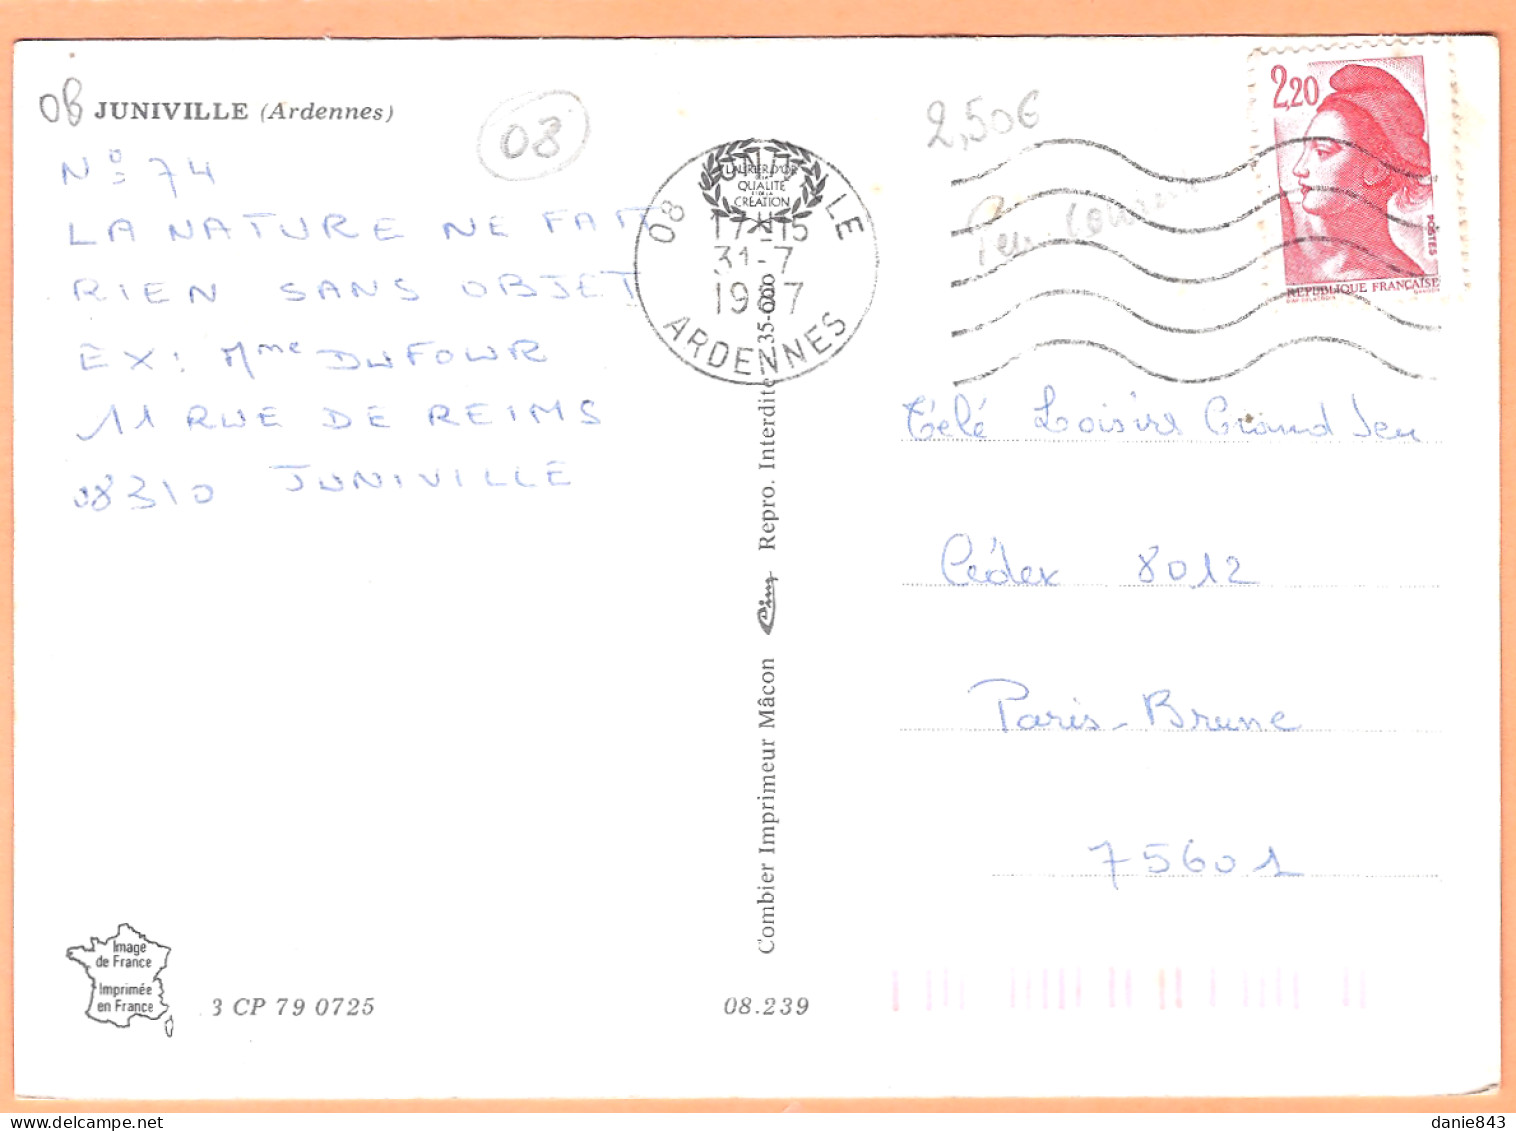 08 JUNIVILLE (Ardennes)
08
2,50€
Nº = 74
LA NATURE NE FAIT
RIEN SANS OBJET
EX : Mme DUFOUR
11 RUE DE REIMS
08310 JUNIVILLE
LAURIER D'OR
QUALITÉ
CRÉATION
08 JUNIVILLE
17-15
31-7
1987
ARDENNES
2,20
POSTES
REPUBLIQUE FRANÇAISE
Peu
Télé Loisirs Grand Jeu
Cédex 8012
Paris-Brune
75601
Combier Imprimeur Mâcon Cim Repro. Interdite 35-000
Image
de France
Imprimée
en France
3 CP 79 0725
08.239
www.delcampe.net
danie843